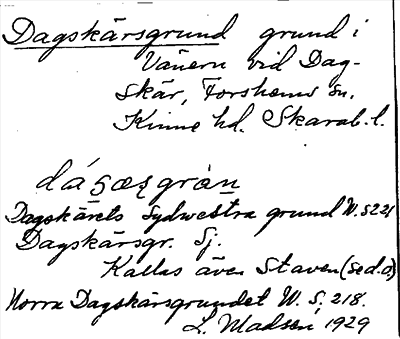 Dagskärsgrund grund i
Vänern vid Dag-
skär, Forshems sn.
Kinne hd. Skarab. l.
dágsæsgròn
Dagskärets Sydwestra grund W. S 221
Dagskärsgr. Sj.
Kallas även Staven (se d. o)
Norra Dagskärsgrundet W. S. 218.
L. Madsén 1929